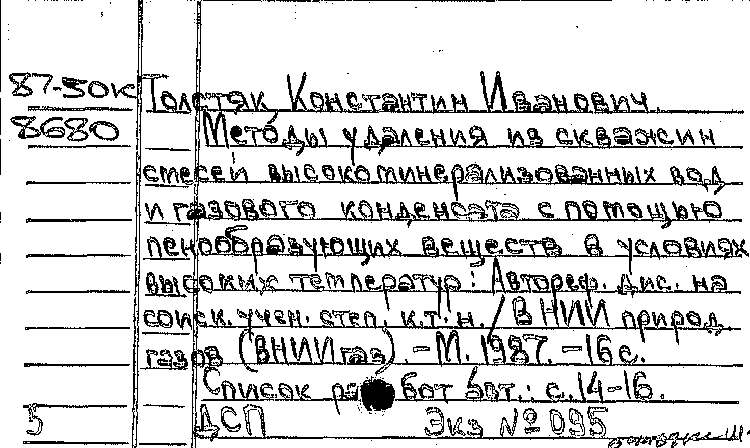 87-50к Толстяк Константин Иванович.
8680 Методы удаления из скважин
смесей высокоминерализованных вод
и газового конденсата с помощью
пенообразующих веществ в условиях
высоких температур: Автореф. дис. на
соиск. учен. степ. к.т.н. / ВНИИ природ.
газов (ВНИИгаз). - М. 1987. - 16 с.
Список работ авт.: с. 14-16.
5 ДСП Экз № 095